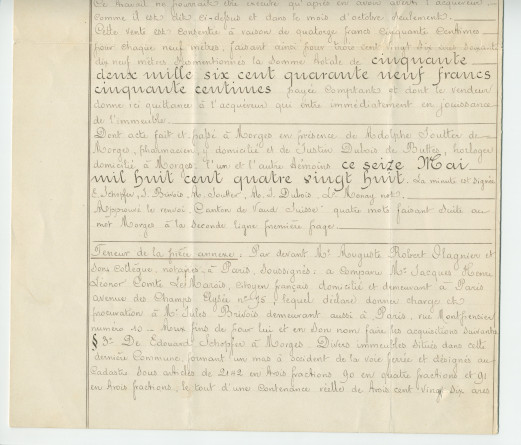 Ce travail ne pourrait être exécuté qu'après en avoir averti l'acquéreur
comme il est dit ci-dessus et dans le mois d'octobre seulement.
Cette vente est consentie à raison de quatorze francs cinquante centimes
pour chaque neuf mètres, faisant ainsi pour
dix neuf mètres susmentionnés la somme totale de cinquante
deux mille six cent quarante neuf francs
cinquante centimes payée comptants et dont le vendeur
donne ici quittance à l'acquéreur qui entre immédiatement en jouissance
de l'immeuble.
Dont acte fait et passé à Morges en présence de Adolphe Soutter de
Morges, pharmacien y domicilié et de Justin Dubois de Buttes, horloger
domicilié à Morges, l'un et l'autre témoins ce seize Mai
mil huit cent quatre vingt huit. La minute est signée
E. Schopfer, J. Brivois, A. Soutter, A. J. Dubois, Monay not.
Approuvé le renvoi Canton de Vaud Suisse quatre mots faisant suite au
mot Morges à la seconde ligne première page
Teneur de la pièce annexe: Par devant Me Auguste Robert Plagnier et
son Collègue, notaires à Paris, soussignés; a comparu Mr Jacques Henri
Léonor Comte Le Marois, citoyen français domicilié et demeurant à Paris
avenue des Champs Elysée no 75, lequel déclare donner charge et
procuration à Mr Jules Brivois demeurant aussi à Paris, rue Montpensier
numéro 10 - Aux fins de pour lui et en son nom faire les acquisitions suivantes
§ 3o De Edouard Schopfer à Morges. Divers immeubles situés dans cette
dernière Commune, formant un mas à occident de la voie ferrée et désignés au
Cadastre sous articles de 2182 en trois fractions 90 en quatre fractions et 91
en trois fractions, le tout d'une contenance réelle de trois cent vingt six ares